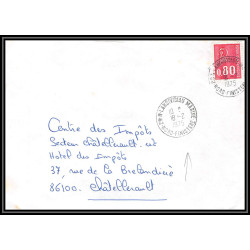 0,80
LANDIVISIAU MARINE
1975
Centre des Impôts
Section Châtellerault
Hôtel des Impôts
37, rue de la Brelandière
86100. Châtellerault